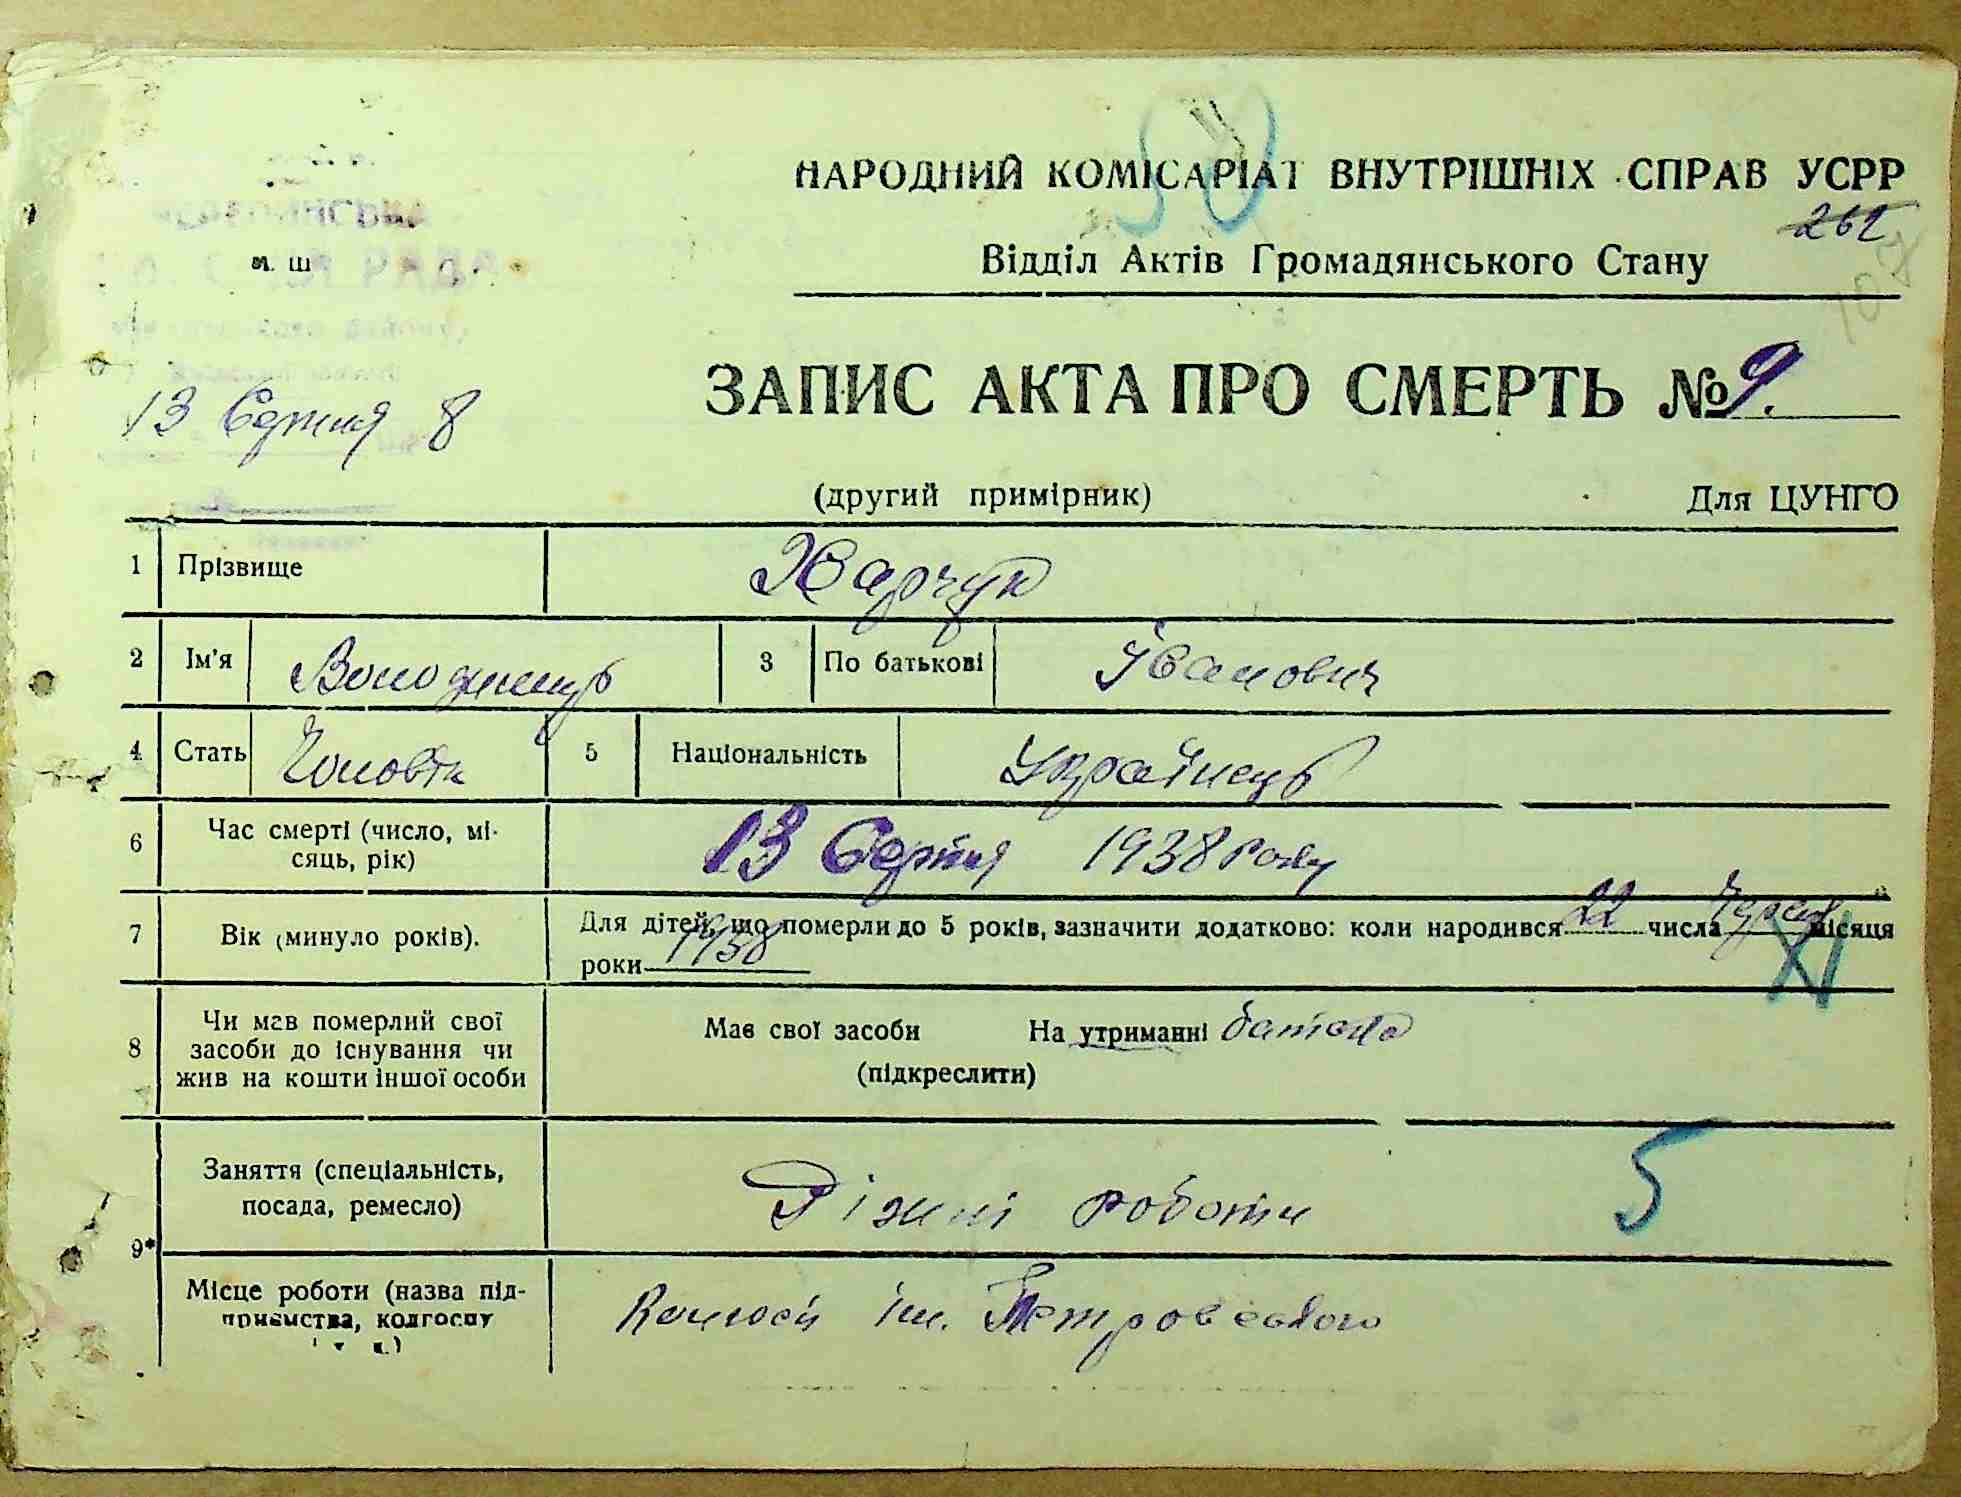 НАРОДНИЙ КОМІСАРІАТ ВНУТРІШНІХ СПРАВ УСРР
262
Відділ Актів Громадянського Стану
М. Ш
РАДА
13 Серпня 8
ЗАПИС АКТА ПРО СМЕРТЬ № 9.
(другий примірник) Для ЦУНГО
1 Прізвище Харчук
2 Ім'я Володимир 3 По батькові Іванович
4 Стать Чоловік 5 Національність Українець
6 Час смерті (число, мі-
сяць, рік) 13 Серпня 1938 року
7 Вік (минуло років). Для дітей, що померли до 5 років, зазначити додатково: коли народився 22 числа місяця
роки 1938
XI
8 Чи мав померлий свої
засоби до існування чи
жив на кошти іншої особи
Має свої засоби На утриманні батька
(підкреслити)
9* Заняття (спеціальність,
посада, ремесло) Різні роботи 5
Місце роботи (назва під-
приємства, колгоспу
Колгосп ім. Петровського